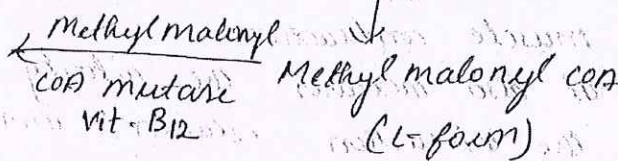 Methyl malonyl
CoA mutase
Vit-B12
Methyl malonyl CoA
(L-form)